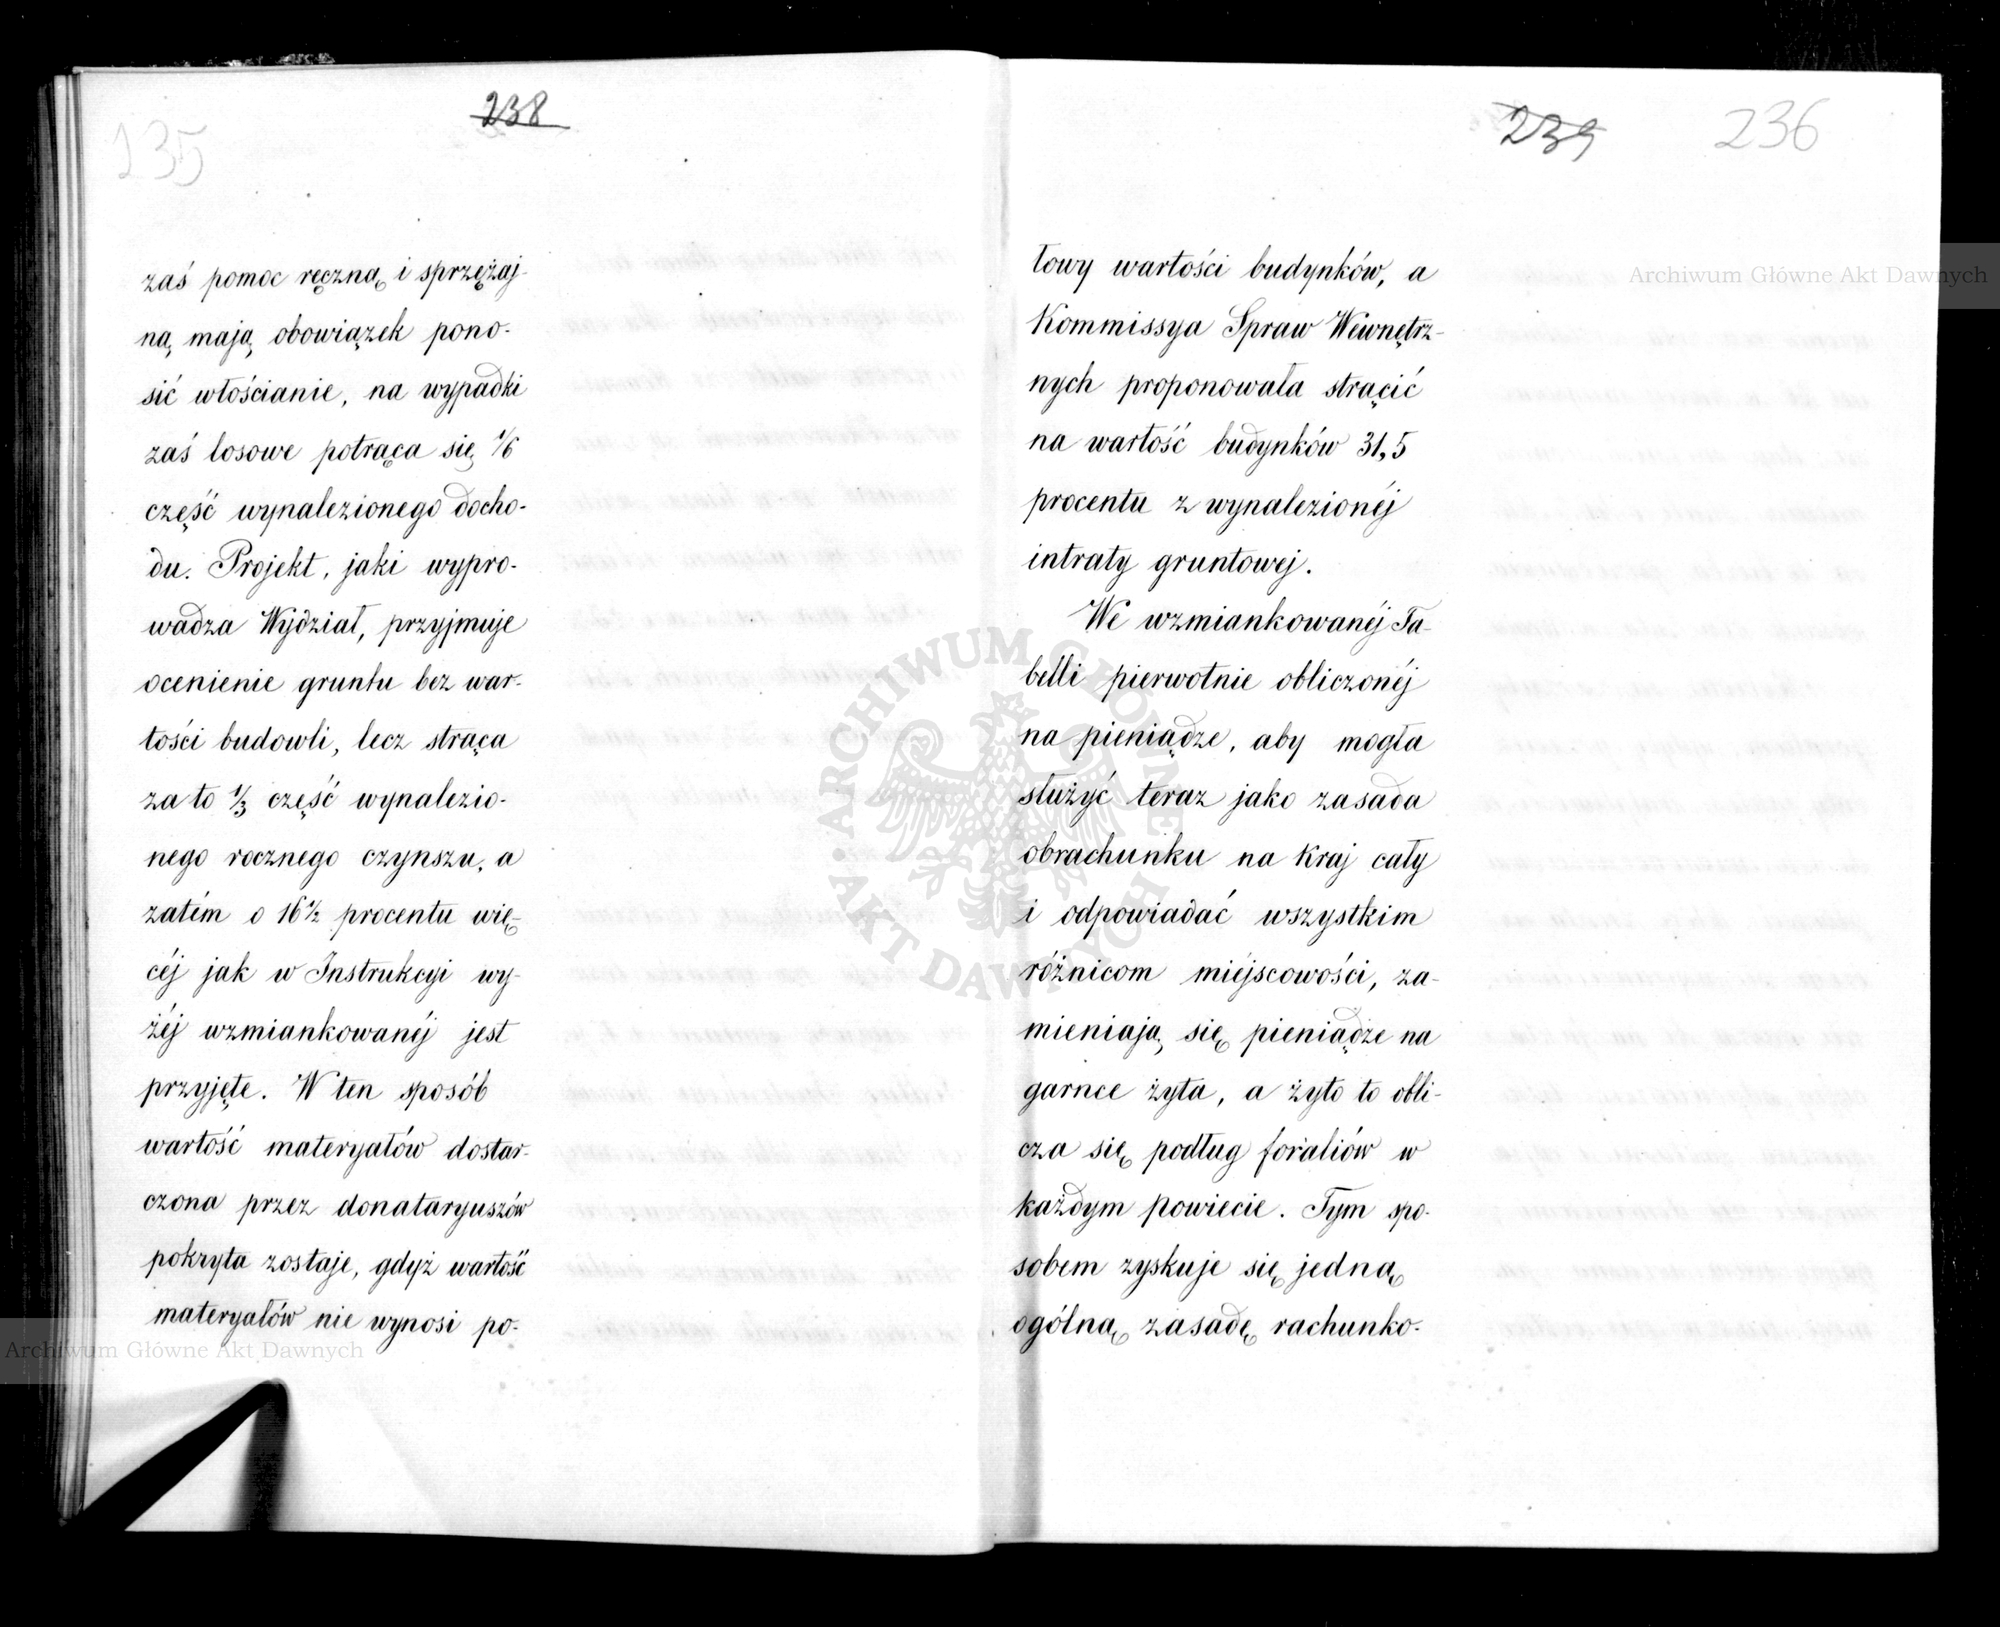 135
238
zaś pomoc ręczną i sprzężaj-
ną mają obowiązek pono-
sić włościanie, na wypadki
zaś losowe potrąca się 1/6
część wynalezionego docho-
du. Projekt, jaki wypro-
wadza Wydział, przyjmuje
ocenienie gruntu bez war-
tości budowli, lecz strąca
za to 1/3 część wynalezio-
nego rocznego czynszu, a
zatém o 16 1/2 procentu wię-
céj jak w Instrukcyi wy-
żéj wzmiankowanéj jest
przyjęte. W ten sposób
wartość materyałów dostar-
czona przez donataryuszów
pokryta zostaje, gdyż wartość
materyałów nie wynosi po-
239
236
łowy wartości budynków, a
Kommissya Spraw Wewnętrz-
nych proponowała strącić
na wartość budynków 31,5
procentu z wynalezionéj
intraty gruntowej.
We wzmiankowanéj Ta-
belli pierwotnie obliczonéj
na pieniądze, aby mogła
służyć teraz jako zasada
obrachunku na kraj cały
i odpowiadać wszystkim
różnicom miéjscowości, za-
mieniają się pieniądze na
garnce żyta, a żyto to obli-
cza się podług foraliów w
każdym powiecie. Tym spo-
sobem zyskuje się jedną
ogólną zasadę rachunko-
Archiwum Główne Akt Dawnych
Archiwum Główne Akt Dawnych
ARCHIWUM GŁÓWNE AKT DAWNYCH